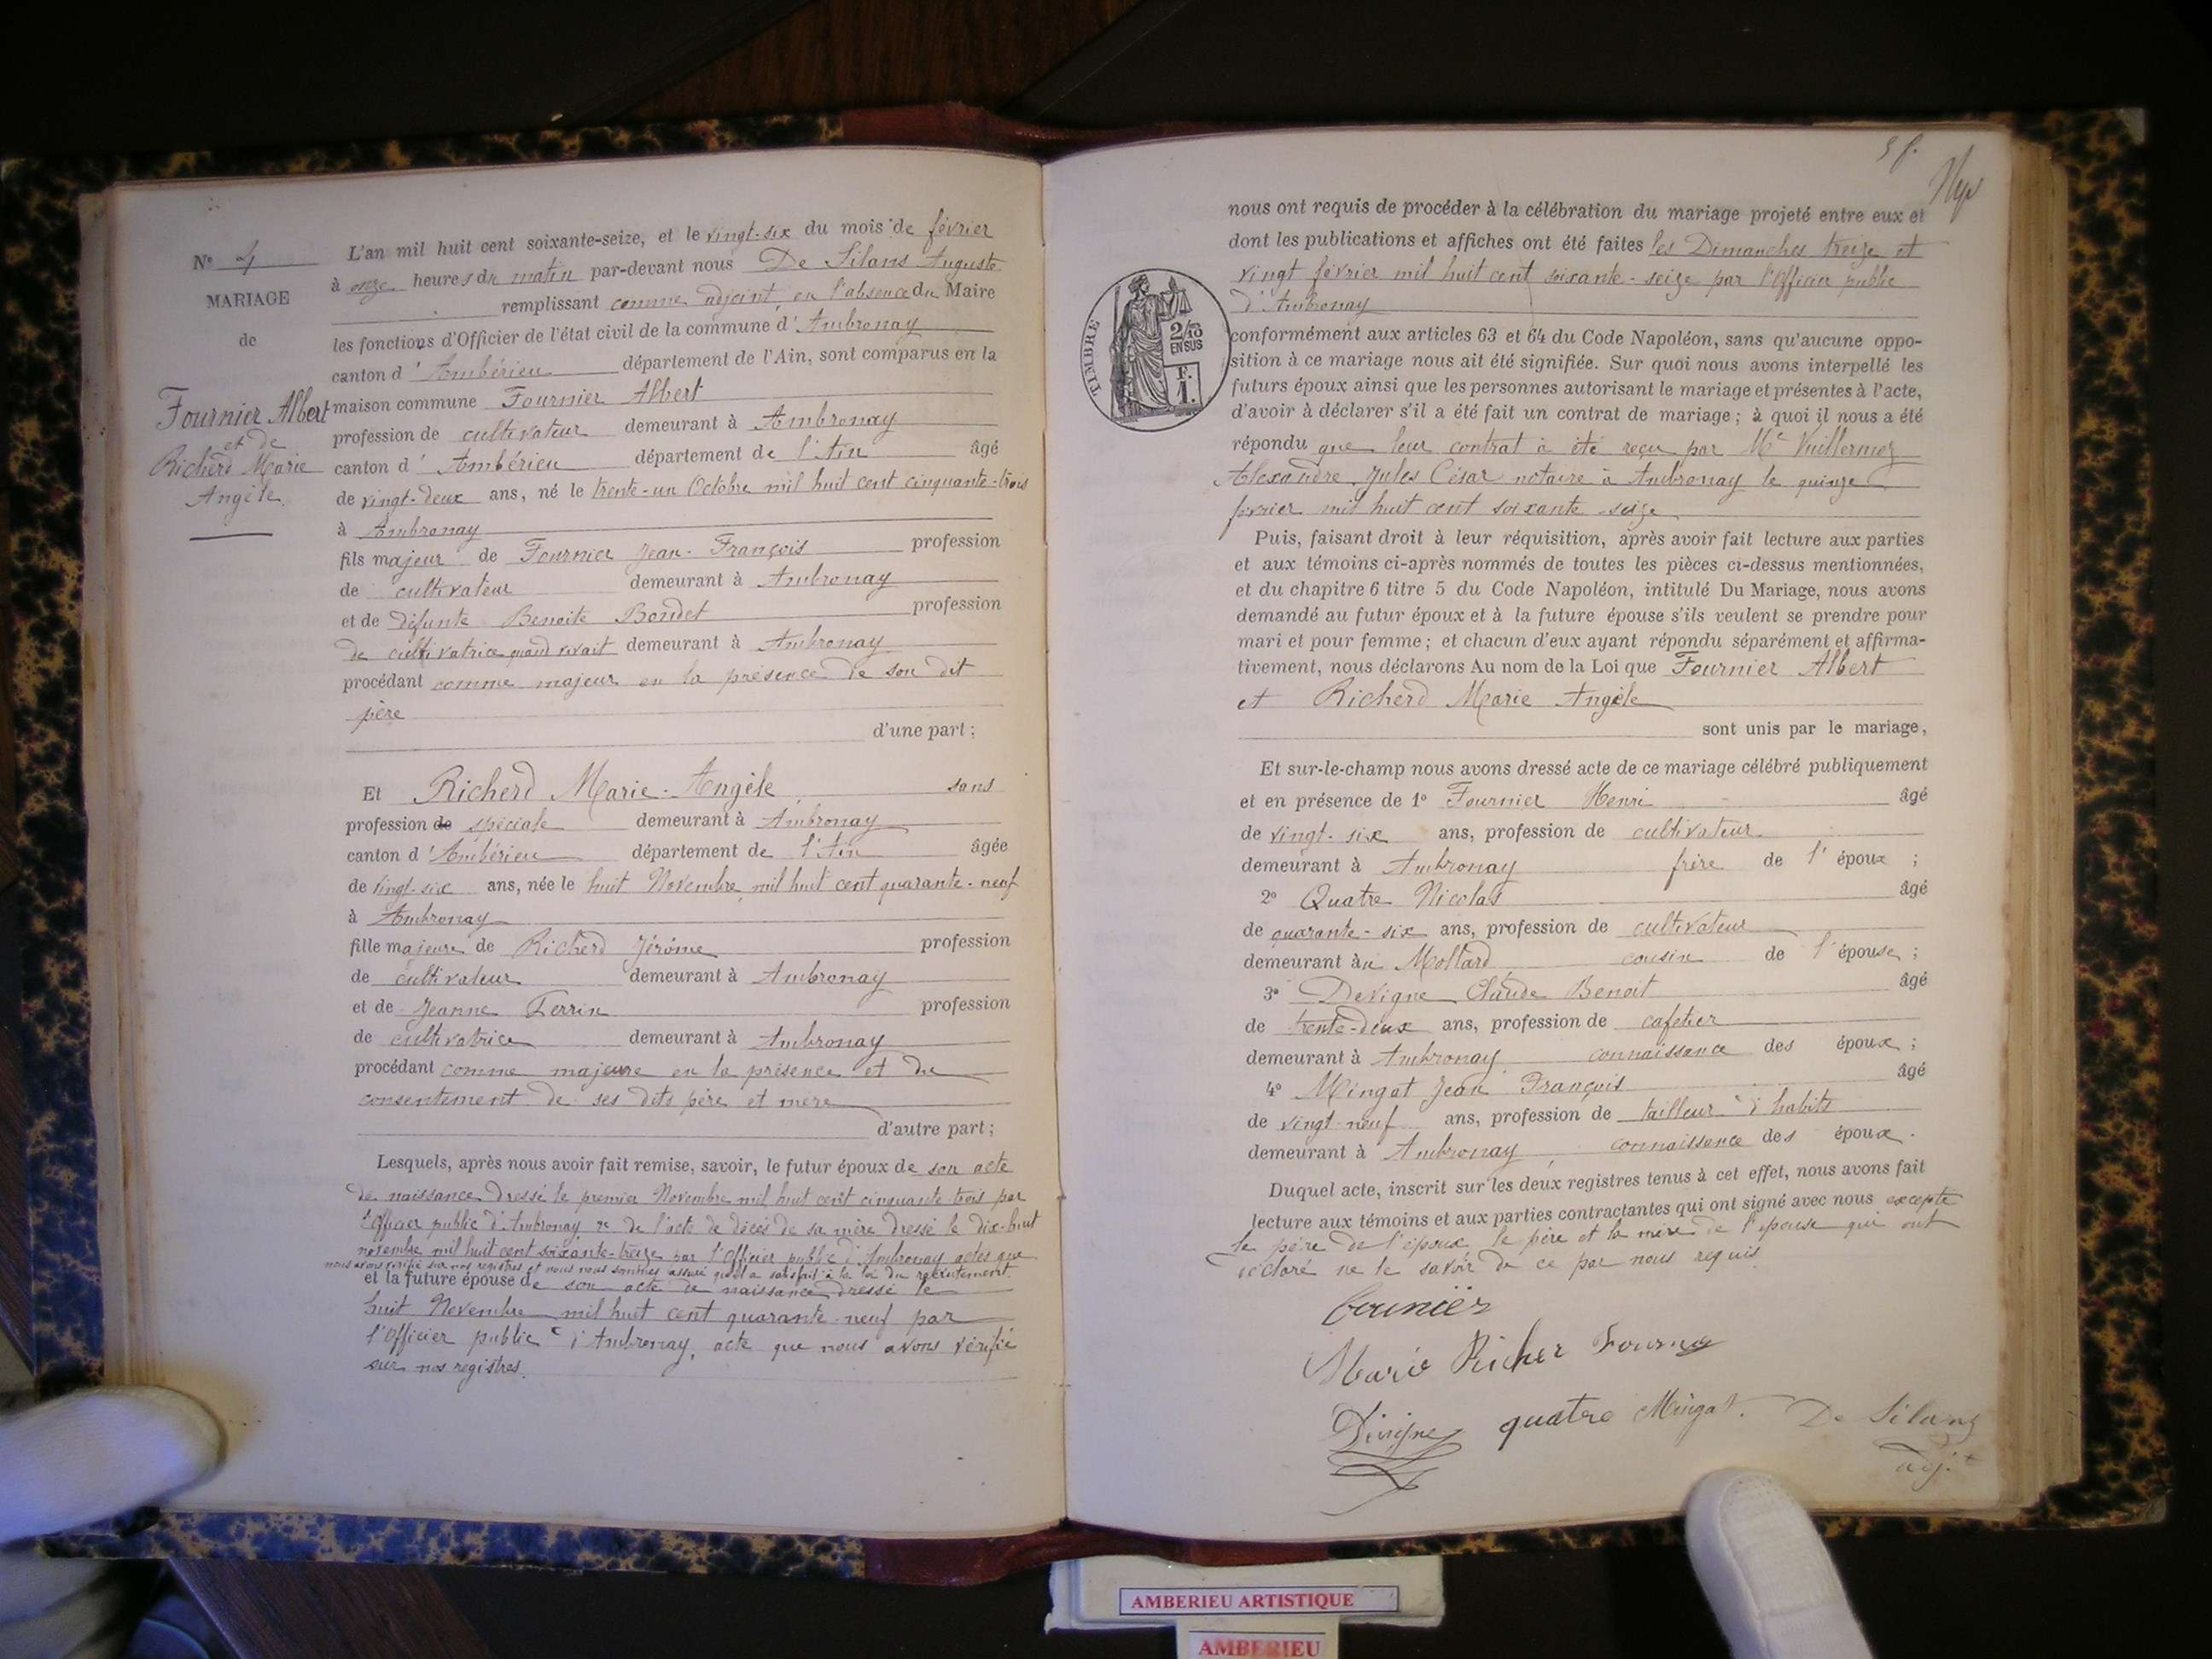 N° 4
MARIAGE
de
Fournier Albert
et de
Richerd Marie
Angèle.
L'an mil huit cent soixante-seize, et le vingt-six du mois de février
à onze heures du matin par-devant nous De Silans Auguste
remplissant comme adjoint en l'absence du Maire
les fonctions d'Officier de l'état civil de la commune d'Ambronay
canton d'Ambérieu département de l'Ain, sont comparus en la
maison commune Fournier Albert
profession de cultivateur demeurant à Ambronay
canton d'Ambérieu département de l'Ain âgé
de vingt-deux ans, né le trente-un Octobre mil huit cent cinquante-trois
à Ambronay
fils majeur de Fournier Jean-François profession
de cultivateur demeurant à Ambronay
et de défunte Benoite Bondet profession
de cultivatrice quand vivait demeurant à Ambronay
procédant comme majeur en la présence de son dit
père
d'une part;
Et Richerd Marie-Angèle sans
profession de spéciale demeurant à Ambronay
canton d'Ambérieu département de l'Ain âgée
de vingt-six ans, née le huit Novembre mil huit cent quarante-neuf
à Ambronay
fille majeure de Richerd Jérôme profession
de cultivateur demeurant à Ambronay
et de Jeanne Perrin profession
de cultivatrice demeurant à Ambronay
procédant comme majeure en la présence et du
consentement de ses dits père et mère
d'autre part;
Lesquels, après nous avoir fait remise, savoir, le futur époux de son acte
de naissance dressé le premier Novembre mil huit cent cinquante-trois par
l'Officier public d'Ambronay de l'acte de décès de sa mère dressé le dix-huit
novembre mil huit cent soixante-treize par l'Officier public d'Ambronay actes que
nous avons vérifié sur nos registres et nous nous sommes assuré qu'il a satisfait à la loi du recrutement.
et la future épouse de son acte de naissance dressé le
huit Novembre mil huit cent quarante-neuf par
l'Officier public d'Ambronay, acte que nous avons vérifié
sur nos registres.
nous ont requis de procéder à la célébration du mariage projeté entre eux et
dont les publications et affiches ont été faites les Dimanches treize et
vingt février mil huit cent soixante-seize par l'Officier public
d'Ambronay
TIMBRE
2/10
EN SUS
F.
1.
conformément aux articles 63 et 64 du Code Napoléon, sans qu'aucune oppo-
sition à ce mariage nous ait été signifiée. Sur quoi nous avons interpellé les
futurs époux ainsi que les personnes autorisant le mariage et présentes à l'acte,
d'avoir à déclarer s'il a été fait un contrat de mariage; à quoi il nous a été
répondu que leur contrat à été reçu par Me Vuillermoz
Alexandre Jules César notaire à Ambronay le quinze
février mil huit cent soixante-seize
Puis, faisant droit à leur réquisition, après avoir fait lecture aux parties
et aux témoins ci-après nommés de toutes les pièces ci-dessus mentionnées,
et du chapitre 6 titre 5 du Code Napoléon, intitulé Du Mariage, nous avons
demandé au futur époux et à la future épouse s'ils veulent se prendre pour
mari et pour femme; et chacun d'eux ayant répondu séparément et affirma-
tivement, nous déclarons Au nom de la Loi que Fournier Albert
et Richerd Marie Angèle
sont unis par le mariage,
Et sur-le-champ nous avons dressé acte de ce mariage célébré publiquement
et en présence de 1° Fournier Henri âgé
de vingt-six ans, profession de cultivateur
demeurant à Ambronay frère de l'époux;
2° Quatre Nicolas âgé
de quarante-six ans, profession de cultivateur
demeurant au Mollard cousin de l'épouse;
3° Devigne Claude Benoit âgé
de trente-deux ans, profession de cafetier
demeurant à Ambronay connaissance des époux;
4° Mingat Jean François âgé
de vingt neuf ans, profession de tailleur d'habits
demeurant à Ambronay connaissance des époux.
Duquel acte, inscrit sur les deux registres tenus à cet effet, nous avons fait
lecture aux témoins et aux parties contractantes qui ont signé avec nous excepté
le père de l'époux le père et la mère de l'épouse qui ont
déclaré ne le savoir de ce par nous requis.
Fournier
Marie Richer Fournier
Devigne quatre Mingat. De Silans
adjt
AMBERIEU ARTISTIQUE
AMBERIEU